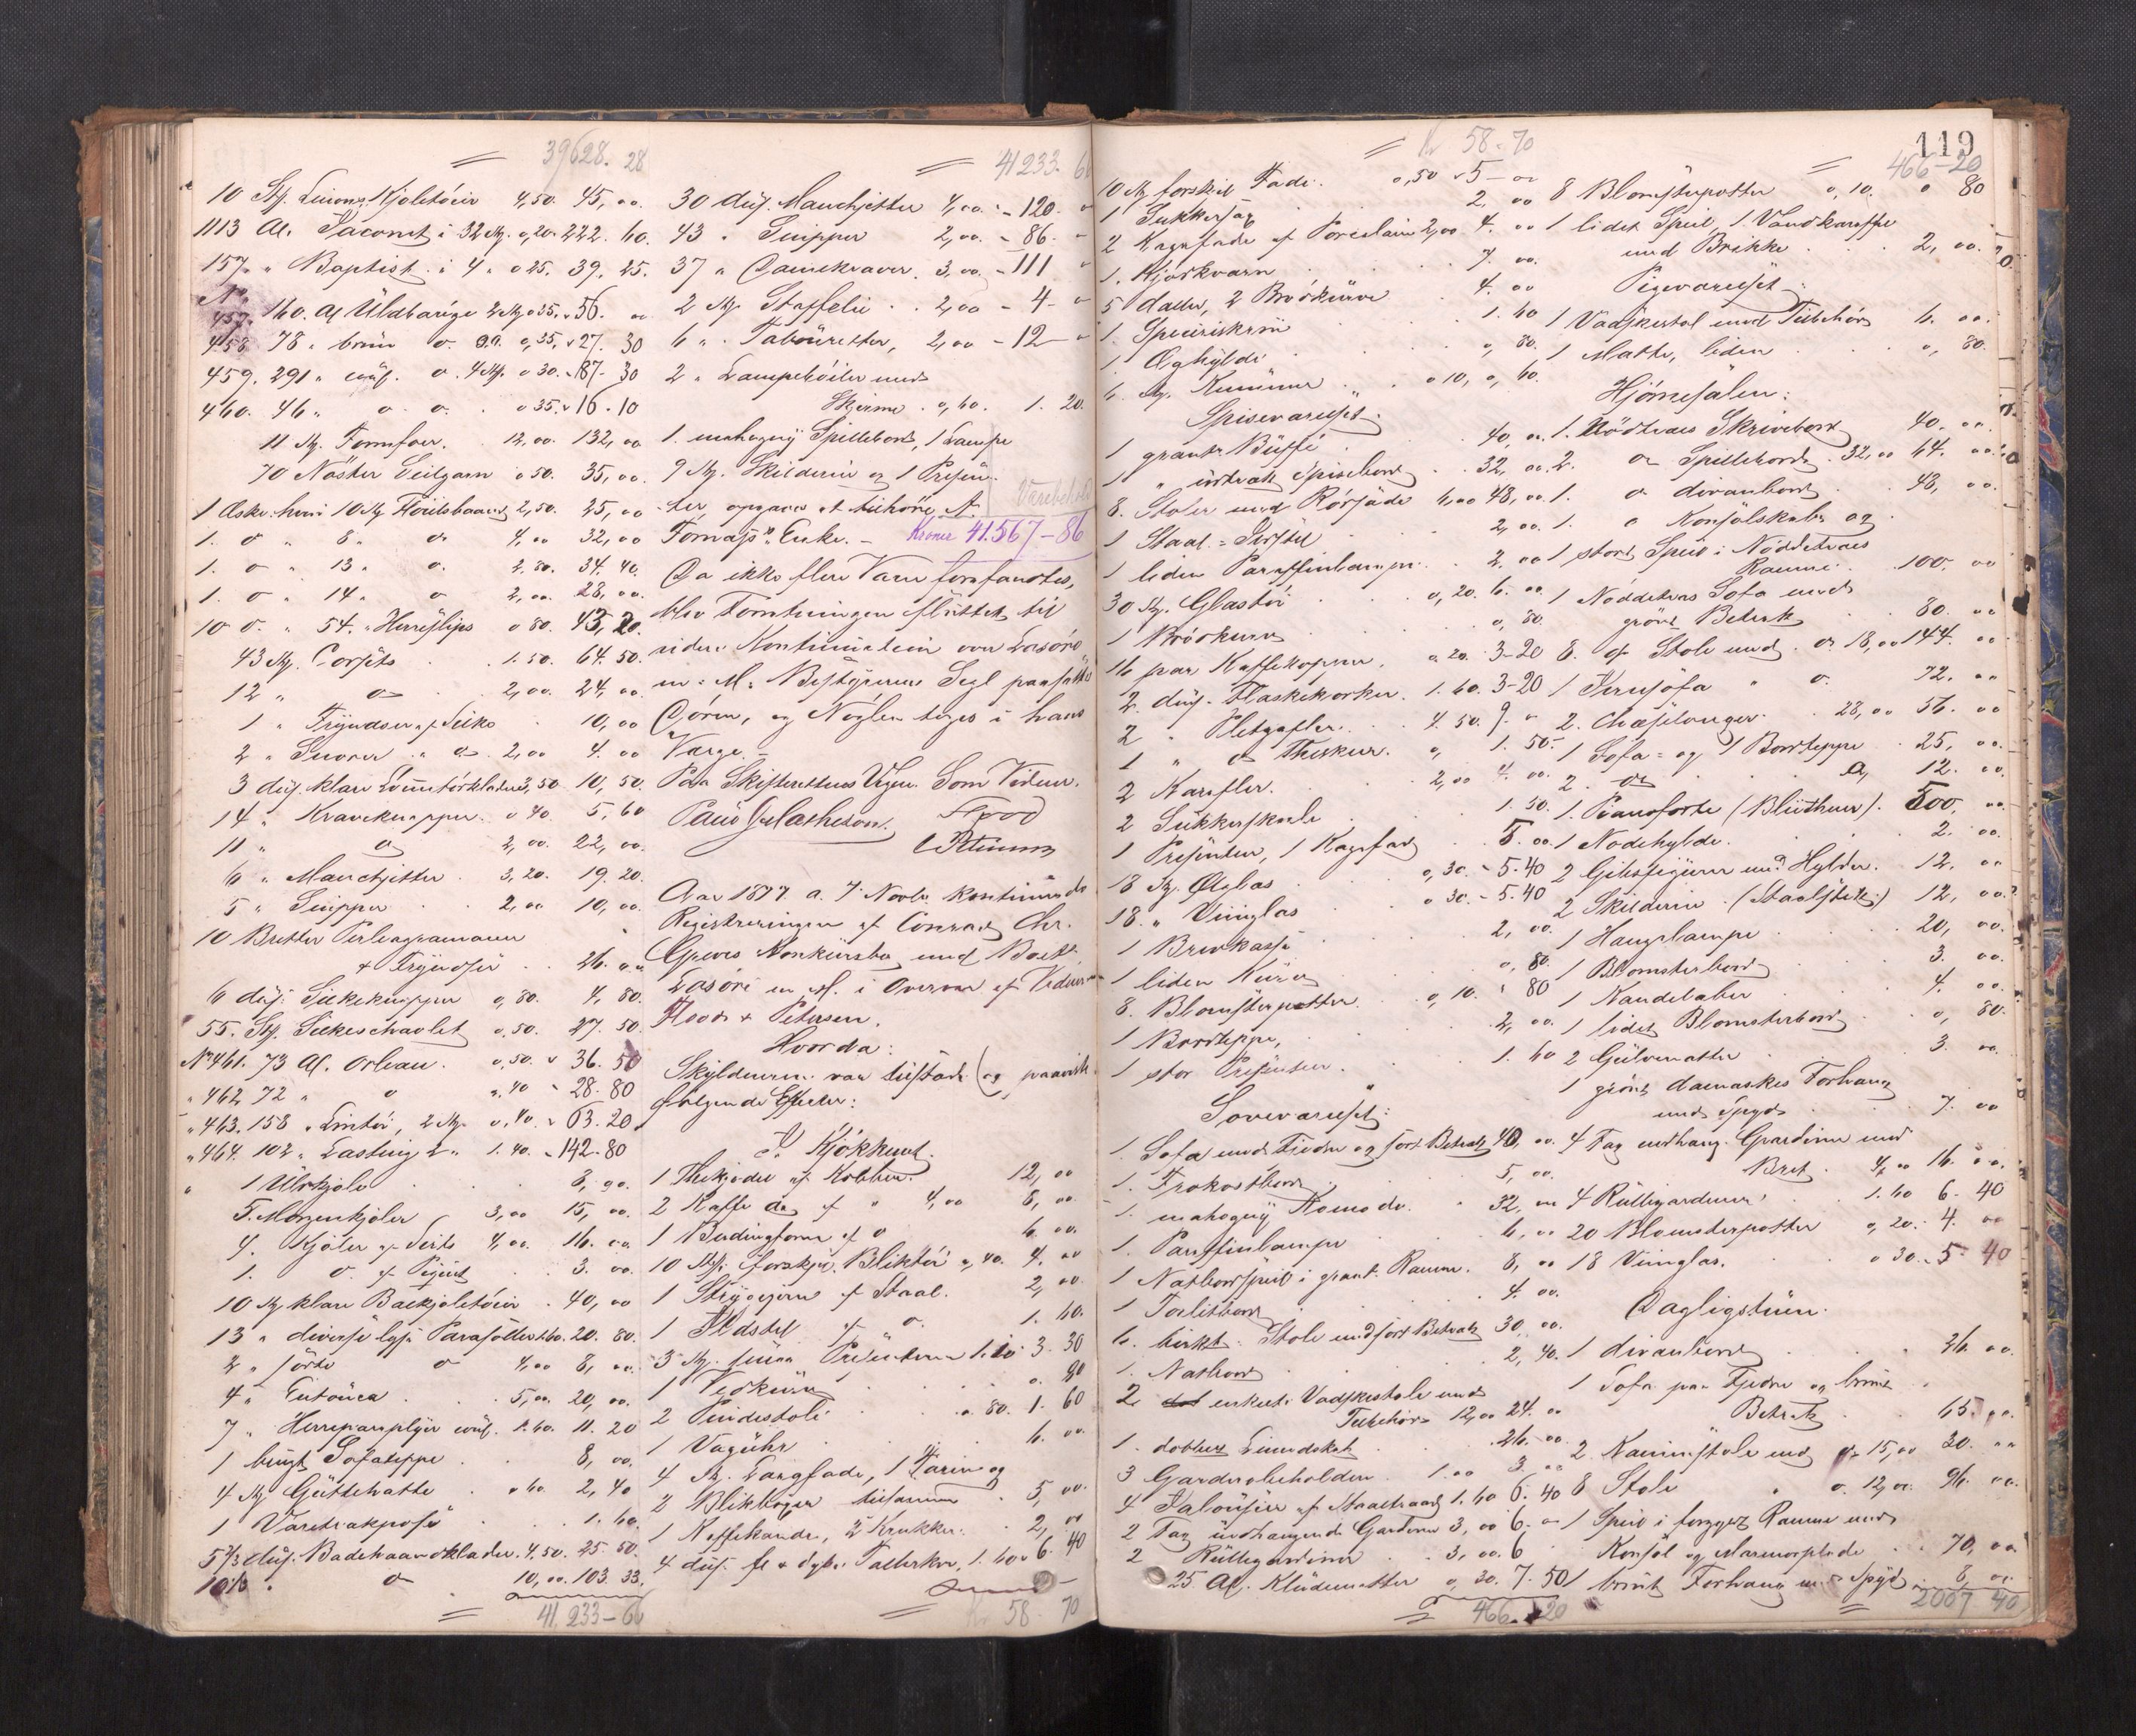 39628. 28
10 St. Kjoletöier 4,50. 45,00.
1113 Al. Jaconet i 32 St. 0,20. 222. 60.
157 " Baptist i 4 " 0 25. 39. 25.
No
457. 160. Al Uldbarége 2 St. 0 35. 56. 00
458 78 " brun do. 0,35. 27. 30
459. 291 " do. 4 St. 0 30. 87. 30
460. 46 " do. do. 0 35. 16. 10
11 St. 12,00. 132,00
70 Nöster Seilgarn 0 50. 35,00.
1 Æske hvori 10 St. 2,50. 25,00
1. do " 8 " do 4,00 32,00
1. do " 13 " do. 2.80. 34.40.
1. do " 14 " do 2,00. 28,00.
10 do. " 54. " Herreslips 0 80. 43,20.
43 St. Corsets 1.50. 64.50.
12 " do 2,00. 24,00.
1 " af Silke 10,00
2 " Snorer " do. 2,00 4.00
3 dus. klare 3,50 10,50.
14 " Kraveknapper 0 40. 5,60
11 " do 2,00. 22,00.
6 " Manchetter 3,20. 19.20.
5 " Snipper 2,00 10,00.
10 Bretter
& 26.00
6 dus. Silkeknapper 0,80. 4,80.
55. St. 0,50. 27.50
No 461. 73 Al. Orlean. 0,50. 36.50
" 462 72 " do 0,40 28.80
" 463. 158 " Lintöi, 2 St. 0,40. 63.20
" 464. 102 " Lasting 2 " 1.40. 142.80
1 Ulvkjole 8,00.
5. Morgenkjoler 3,00 15,00.
4. Kjoler af 4,00. 16.00
1. do. af 3.00.
10 St. klare Balkjoletöier 40,00
13 " diverse lyse Parasoller 1.60. 20.80.
2 " sorte do 4,00 8,00.
4 " Entoucas 5,00. 20,00.
7 " Herreparaplyer 1.60. 11.20
1 brugt Sofateppe 8,00.
4 St. Guttehatte 0 60. 2,40
1 1.60.
5 2/3 dus. Badehaandklæder 4.50. 25.50.
10 1/3 " do 10,00. 103.33.
41,233-66
41233. 66
30 dus. Manchetter 4,00. 120.
43 " Snipper 2,00. 86.
37 " Damekraver. 3,00. 111
2 St. Staffelie 2,00 - 4-
6 " Tabouretter, 2,00 - 12-
2 " Lampehöiler med
Skjerme 0,60. 1.20.
1. mahogny Spillebord, 1 Lampe
9 St. Skilderier og 1 Presen-
ter, opgaves at tilhöre A.
Enke. - Kroner 41.567-86
Da ikke flere Varer forefandtes,
blev Forretningen sluttet til
videre Kontinuation over Lösöre
en. M. Bestyrerens Segl paasattes
Dören, og Nöglen toges i hans
Værge.
Paa Skifterettens Vegne. Som Vidner.
Flood
Aar 1877 a. 7 Novbr. kontinuerede
Registreringen af Conrad Chr.
Greves Konkursbo med Boets
Lösöre en M. i Overvær af Vidnerne
Flood & Petersen.
Hvorda:
Skyldneren var tilstæde (og paaviste
fölgende Effecter:
I Kjökkenet.
1 Thekjedel af Kobber. 12,00
2 Kaffe do af " 4,00 8,00.
1 Budingform af do 6.00.
10 St. forskjel. Bliktöi 0,40. 4,00
1 Strygejern af Staal. 2,00.
1 Ildstel af do. 1.60.
3 St. smaa 1.10 3.30
1 Vedkurv 0.90
2 Pindestole 0.80. 1.60
1 Vægtuhr 6.00.
4 St. Langfade, 1 Tarin og
2 Blikbögser tilsammen 5,00.
1 Kaffekande, 2 Krukker. 2,00
4 dus. fl. & dybe Tallerkner, 1.60 6.40
Kr 58. 70
Kr 58-70
10 St. forskjel. Fade. 0,50 5-00
1 Sukkerfag 2,00
2 Kagefade af Porcelain 2,00 4.00
1. Kjödkværn 7.00.
5 Daller, 2 Brödkurve 4.00
1. Speceriskrin 1.60
1 Æghylde 0,80.
6 St. 0 10, 0,60.
Spiseværelset.
1 granet Buffé 40,00.
1 " udtræk Spisebord 32,00.
8. Stoler med Rörsæde 6,00 48,00.
1 Staal- 2,00.
1 liden Paraffinlampe 2.00
30 St. Glastöi 0,20. 6.00
1 Brödkurv 0,80.
16 par Kaffekopper 0 20. 3-20
2. dus. Flaskekorker. 1.60. 3-20
2 " Pletgafler 4.50. 9.
1 " do Theskeer. 1.50.
2 Karafler. 2,00 4.00.
2 Sukkerskaale 1.50.
1 Presenter, 1 Kagefad 5.00
18 St. Ölglas 0,30. 5.40
18. " Viinglas 0 30. 5.40
1 Brevkasse 2,00.
1 liden Kurv 0,80.
8. Blomsterpotter 0,10. 80
1 Bordteppe, 2,00.
1 stor 1.60
Soveværelset:
1. Sofa med Fjedre og sort Betræk 40,00.
1. Frokostbord 5,00.
1. mahogny Komode. 32,00
1. Paraffinlampe 6,00
1 Natbordspeil i granet Ramme. 8,00
1 Toiletbord 4.00.
6. birke Stole med sort Betræk 30,00.
1. Natbord 2,40.
2 enkelte Vadskestole med
Tilbehör 12,00 24.00
1. dobbelt Linnedskab 26.00
3 Garderobeholdere 1.00 3.00
4 Jalousier af Staaltraad 1.60 6.40
2 Fag uudhængende Gardiner 3,00 6.00
2 Rullegardiner 3,00. 6
25 Al. Kludematter 0,30. 7.50
466. 20
119
466-20
8 Blomsterpotter 0,10. 0 80
1 lidet Speil, 1 Vandkaraffel
med Brikke 2,00.
Pigeværelset
1 Vadskestol med Tilbehör 6.00.
1 Matte, liden 0,80.
Hjörnesalen:
1. Nödtræes Skrivebord 40.00.
2. do Spillebord 32,00 64.00
1. do divanbord 48,00.
1. do Konsolskab og
1 stort Speil i Nöddetræes
Ramme 100.00
1 Nöddetræs Sofa med
grönt Betræk 80.00
8. do Stole med do 18,00 144.00
1 " do. 72.00
2. Chaiselonger 28,00 56.00
1 Sofa- og 1 Bordteppe 25,00.
2 do do 12.00.
1. Pianoforte (Blüthner). 500,00
1 Nodehylde. 2.00.
2 Gibsfigurer med Hylder. 12,00
2 Skilderier (Staalstik) 12,00
1 Hangelampe 20,00.
1 Blomsterbord 3.00.
1 Kandelaber 4.00.
1 lidet Blomsterbord 0,80.
2 Gulvmatter 3.00.
1 grönt damaskes Forhang
med Spyd 7.00
4 Fag uudhang. Gardiner med
Bret 4,00 16.00.
4 Rullegardiner 1.60 6.40
20 Blomsterpotter 0,20. 4.00
18 Viinglas. 0 30. 5.40
Dagligstuen.
1 divanbord 26.00.
1 Sofa paa Fjedre og brunt
Betræk 65.00.
2 Kaminstole med do 15,00 30.00
8 Stole " do. 12,00. 96.00.
1 Speil i forgyldt Ramme med
Konsol og Marmorplade 70,00
1 brunt Forhang med Spyd 6,00.
2007 40